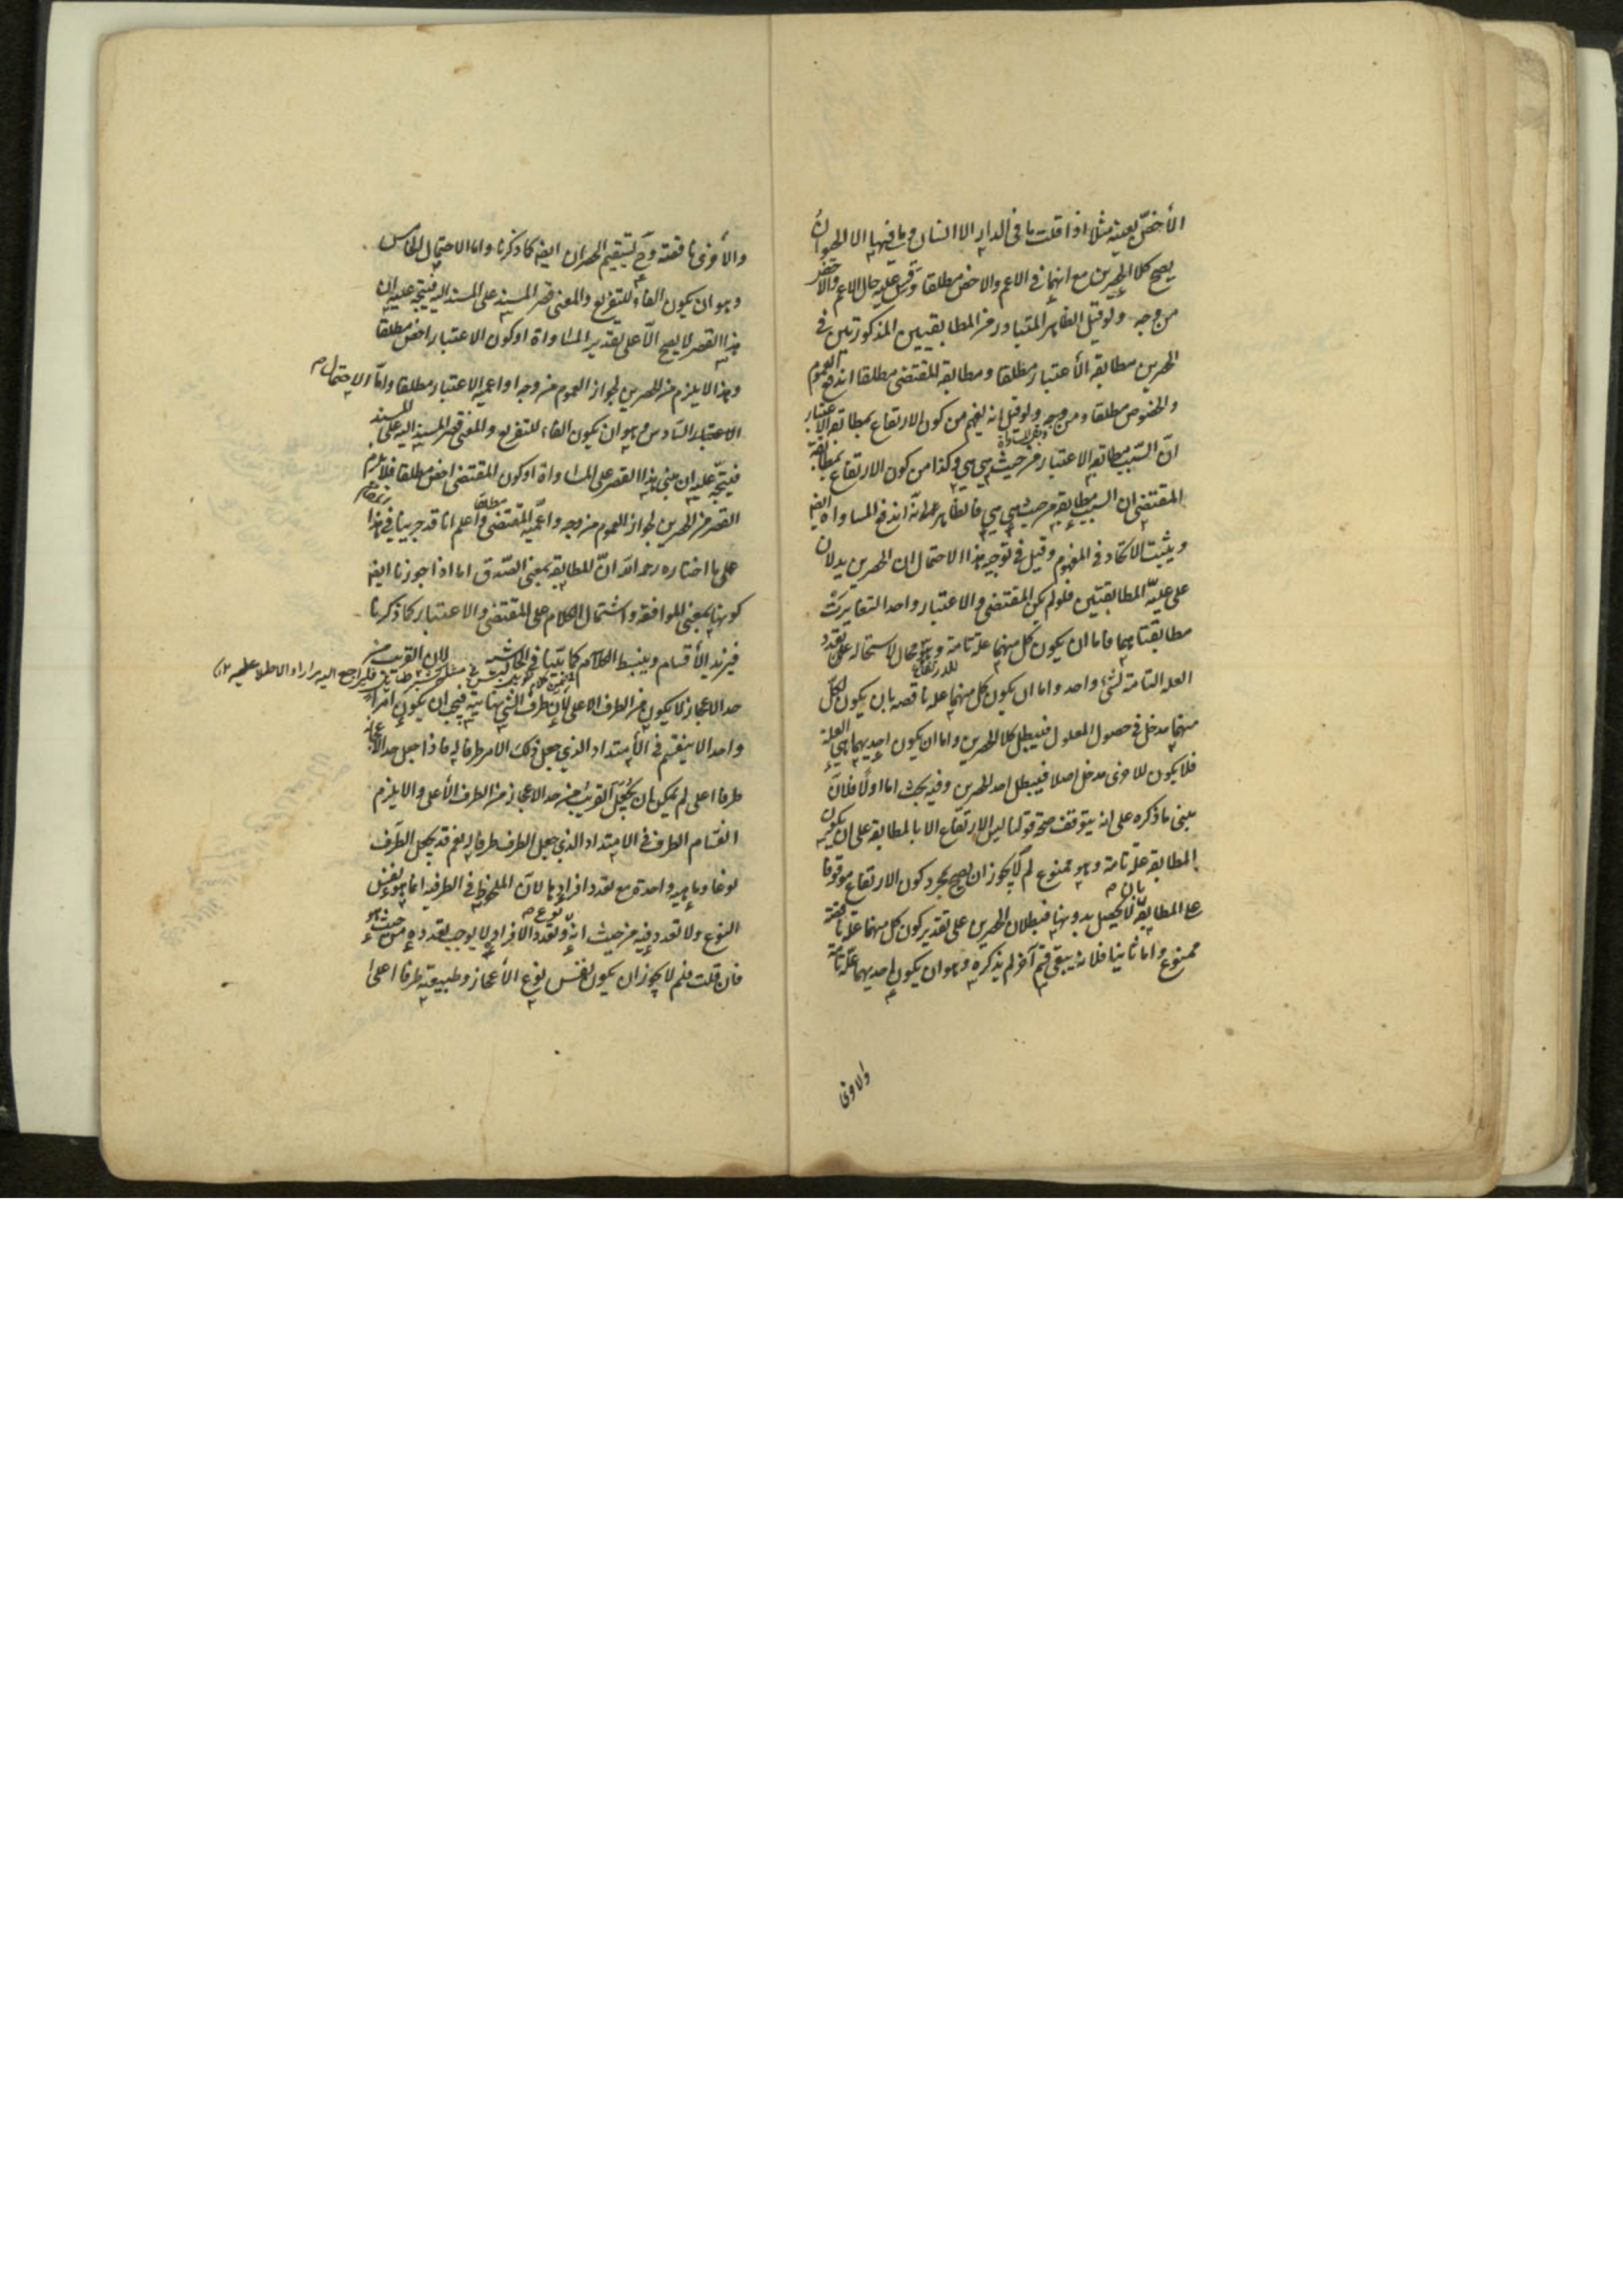 الأخصّ بعينه مثلا اذا قلت ما فى الدار الا انسان وما فيها الا الحيوان
يصح كلا الحصرين مع انهما فى الاعم والاخص مطلقا وقس عليه حال الاعم والاخص
من وجه ولو قيل الظاهر المتبادر من المطابقتين المذكورتين فى
الحصرين مطابقة الأعتبار مطلقا ومطابقة المقتضى مطلقا اندفع العموم
والخصوص مطلقا ومن وجه ولو قيل انه يفهم من كون الارتفاع بمطابقة الاعتبار
انّ السّبب مطابقة الاعتبار من حيث هى هى وكذا من كون الارتفاع بمطابقة
المقتضى ان السبب مطابقة من حيث هى هى فالظاهر انه اندفع المساواة ايضا
ويثبت الاتحاد فى المفهوم وقيل فى توجيه هذا الاحتمال ان الحصرين يدلان
على عليّة المطابقتين فلو لم يكن المقتضى والاعتبار واحدا لتغايرت
مطابقتاهما فاما ان يكون كل منهما علة تامة وهو محال لاستحالة تعدد
العلة التامة لشئ واحد واما ان يكون كل منهما علة ناقصة بان يكون لكل
منهما مدخل فى حصول المعلول فيبطل كلا الحصرين واما ان يكون احديهما هى العلة
فلا يكون للاخرى مدخل اصلا فيبطل احد الحصرين وفيه بحث اما اولا فلانّ
مبنى ما ذكره على انه يتوقف صحة قولنا ليس الارتفاع الا بالمطابقة على ان يكون
المطابقة علة تامة وهو ممنوع لم لا يجوز ان يصح بمجرد كون الارتفاع موقوفا
على المطابقة بان لا يحصل بدونها فبطلان الحصرين على تقدير كون كل منهما علة ناقصة
ممنوع واما ثانيا فلانه يبقى قسم آخر لم يذكره وهو ان يكون احديهما علة تامة
والاخرى
والأخرى ناقصة وح يستقيم الحصران ايضا كما ذكرنا واما الاحتمال الخامس
وهو ان يكون الفاء للتفريع والمعنى قصر المسند على المسند اليه فيتجه عليه ان
هذا القصر لا يصح الّا على تقدير المساواة او كون الاعتبار اخص مطلقا
وهذا لا يلزم من الحصرين لجواز العموم من وجه او اعمية الاعتبار مطلقا وامّا الاحتمال
الاعتبار السّادس وهو ان يكون الفاء للتفريع والمعنى قصر المسند اليه على المسند
فيتجّه عليه ان مبنى هذا القصر على المساواة او كون المقتضى اخص مطلقا فلا يلزم
القصر من الحصرين لجواز العموم من وجه واعمّية المقتضى مطلقا واعلم انا قد جرينا فى هذا المقام
على ما اختاره رحمه الله انّ المطابقة بمعنى الصّدق اما اذا جوزنا ايضا
كونها بمعنى الموافقة واشتمال الكلام على المقتضى والاعتبار كما ذكرنا
فيزيد الأقسام وينبسط الكلام كما بيّنا فى الحاشية لان القريب من
حد الاعجاز لا يكون من الطرف الاعلى لأنّ طرف الشئ نهايته فيجب ان يكون امرا
واحدا لا ينقسم فى الأمتداد الذى جعل ذلك الامر طرفا له فاذا جعل حد الاعجاز
طرفا اعلى لم يمكن ان يجعل القريب من حد الاعجاز من الطرف الأعلى والا يلزم
انقسام الطرف فى الامتداد الذى جعل الطرف طرفا له نعم قد يجعل الطّرف
نوعا وماهية واحدة مع تعدد افرادها لانّ الملحوظ فى الطرفية انما هو نفس
النوع ولا تعدد فيه من حيث انه نوع وتعدد الافراد لا يوجب تعدده من حيث هو
فان قلت فلم لا يجوز ان يكون نفس نوع الأعجاز وطبيعته طرفا اعلى